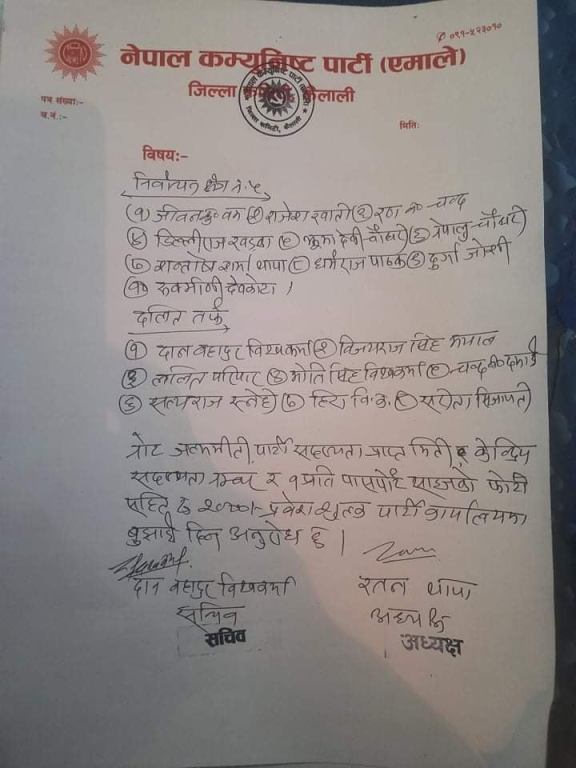 ✆ ०९१-५२३०१०
नेपाल कम्युनिष्ट पार्टी (एमाले)
जिल्ला कमिटी, कैलाली
पत्र संख्याः-
च.नं.:-
मितिः
विषयः-
निर्वाचन क्षेत्र नं. ५
(१) जीवन कु. वम (२) राजेश रवाती (३) रण ब. चन्द
(४) डिल्लीराज खड्का (५) झुमा देवी चौधरी (६) नेपालु चौधरी
(७) सन्तोष शर्मा थापा (८) धर्मराज पाठक (९) दुर्गा जोशी
(१०) रुक्मीणी देवकोटा ।
दलित तर्फ
(१) दान बहादुर विश्वकर्मा (२) विजयराज सिंह
(३) ललित परियार (४) मोति सिंह विश्वकर्मा (५) चन्द्र ब. दमाई
(६) सत्यराज स्नेही (७) हिरा वि.क. (८) सरिता
नोट जन्ममीती, पार्टी सदस्यता प्राप्त मिती र केन्द्रिय
सदस्यता नम्बर र १ प्रति पासपोर्ट साइजको फोटो
सहित रु २०००।- प्रवेश शुल्क पार्टी कार्यालयमा
बुझाई दिन अनुरोध छ ।
दान बहादुर विश्वकर्मा रतन थापा
सचिव अध्यक्ष
सचिव अध्यक्ष